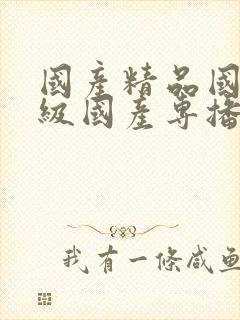 國產精品國
級國產專播
我有一條咸魚